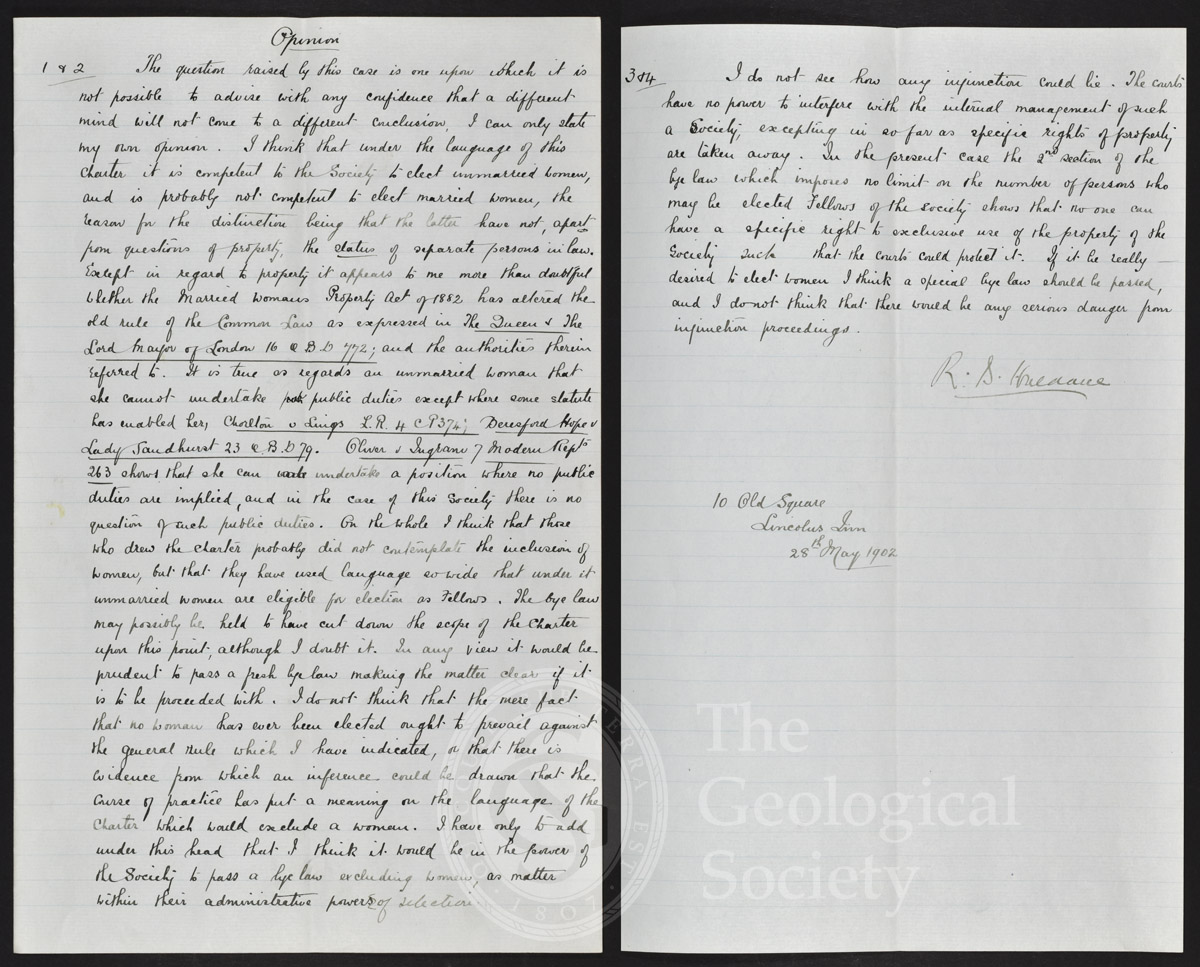 Opinion
1 & 2 The question raised by this case is one upon which it is
not possible to advise with any confidence that a different
mind will not come to a different conclusion, I can only state
my own opinion. I think that under the language of this
Charter it is competent to the Society to elect unmarried women,
and is probably not competent to elect married women, the
reason for the distinction being that the latter have not, apart
from questions of property, the status of separate persons in law.
Except in regard to property it appears to me more than doubtful
whether the Married Womans Property Act of 1882 has altered the
old rule of the Common Law as expressed in The Queen v The
Lord Mayor of London 16 Q.B.D 772; and the authorities therein
referred to. It is true as regards an unmarried woman that
she cannot undertake public duties except where some statute
has enabled her; Chorlton v Lings L.R. 4 C.P 374; Beresford Hope v
Lady Sandhurst 23 Q.B.D 79. Oliver v Ingram 7 Modern Repts
263 shows that she can undertake a position where no public
duties are implied, and in the case of this Society there is no
question of such public duties. On the whole I think that those
who drew the charter probably did not contemplate the inclusion of
women, but that they have used language so wide that under it
unmarried women are eligible for election as Fellows. The bye law
may possibly be held to have cut down the scope of the Charter
upon this point, although I doubt it. In any view it would be
prudent to pass a fresh bye law making the matter clear if it
is to be proceeded with. I do not think that the mere fact
that no woman has ever been elected ought to prevail against
the general rule which I have indicated, or that there is
evidence from which an inference could be drawn that the
course of practice has put a meaning on the language of the
Charter which would exclude a woman. I have only to add
under this head that I think it would be in the power of
the Society to pass a bye law excluding women, as matter
within their administrative powers of selection.
3 & 4 I do not see how any injunction could lie. The courts
have no power to interfere with the internal management of such
a Society, excepting in so far as specific rights of property
are taken away. In the present case the 2nd section of the
bye law which imposes no limit on the number of persons who
may be elected Fellows of the Society shows that no one can
have a specific right to exclusive use of the property of the
Society such that the courts could protect it. If it be really
desired to elect women I think a special bye law should be passed,
and I do not think that there would be any serious danger from
injunction proceedings.
R. B. Haldane
10 Old Square
Lincolns Inn
28th May 1902
The
Geological
Society
1807